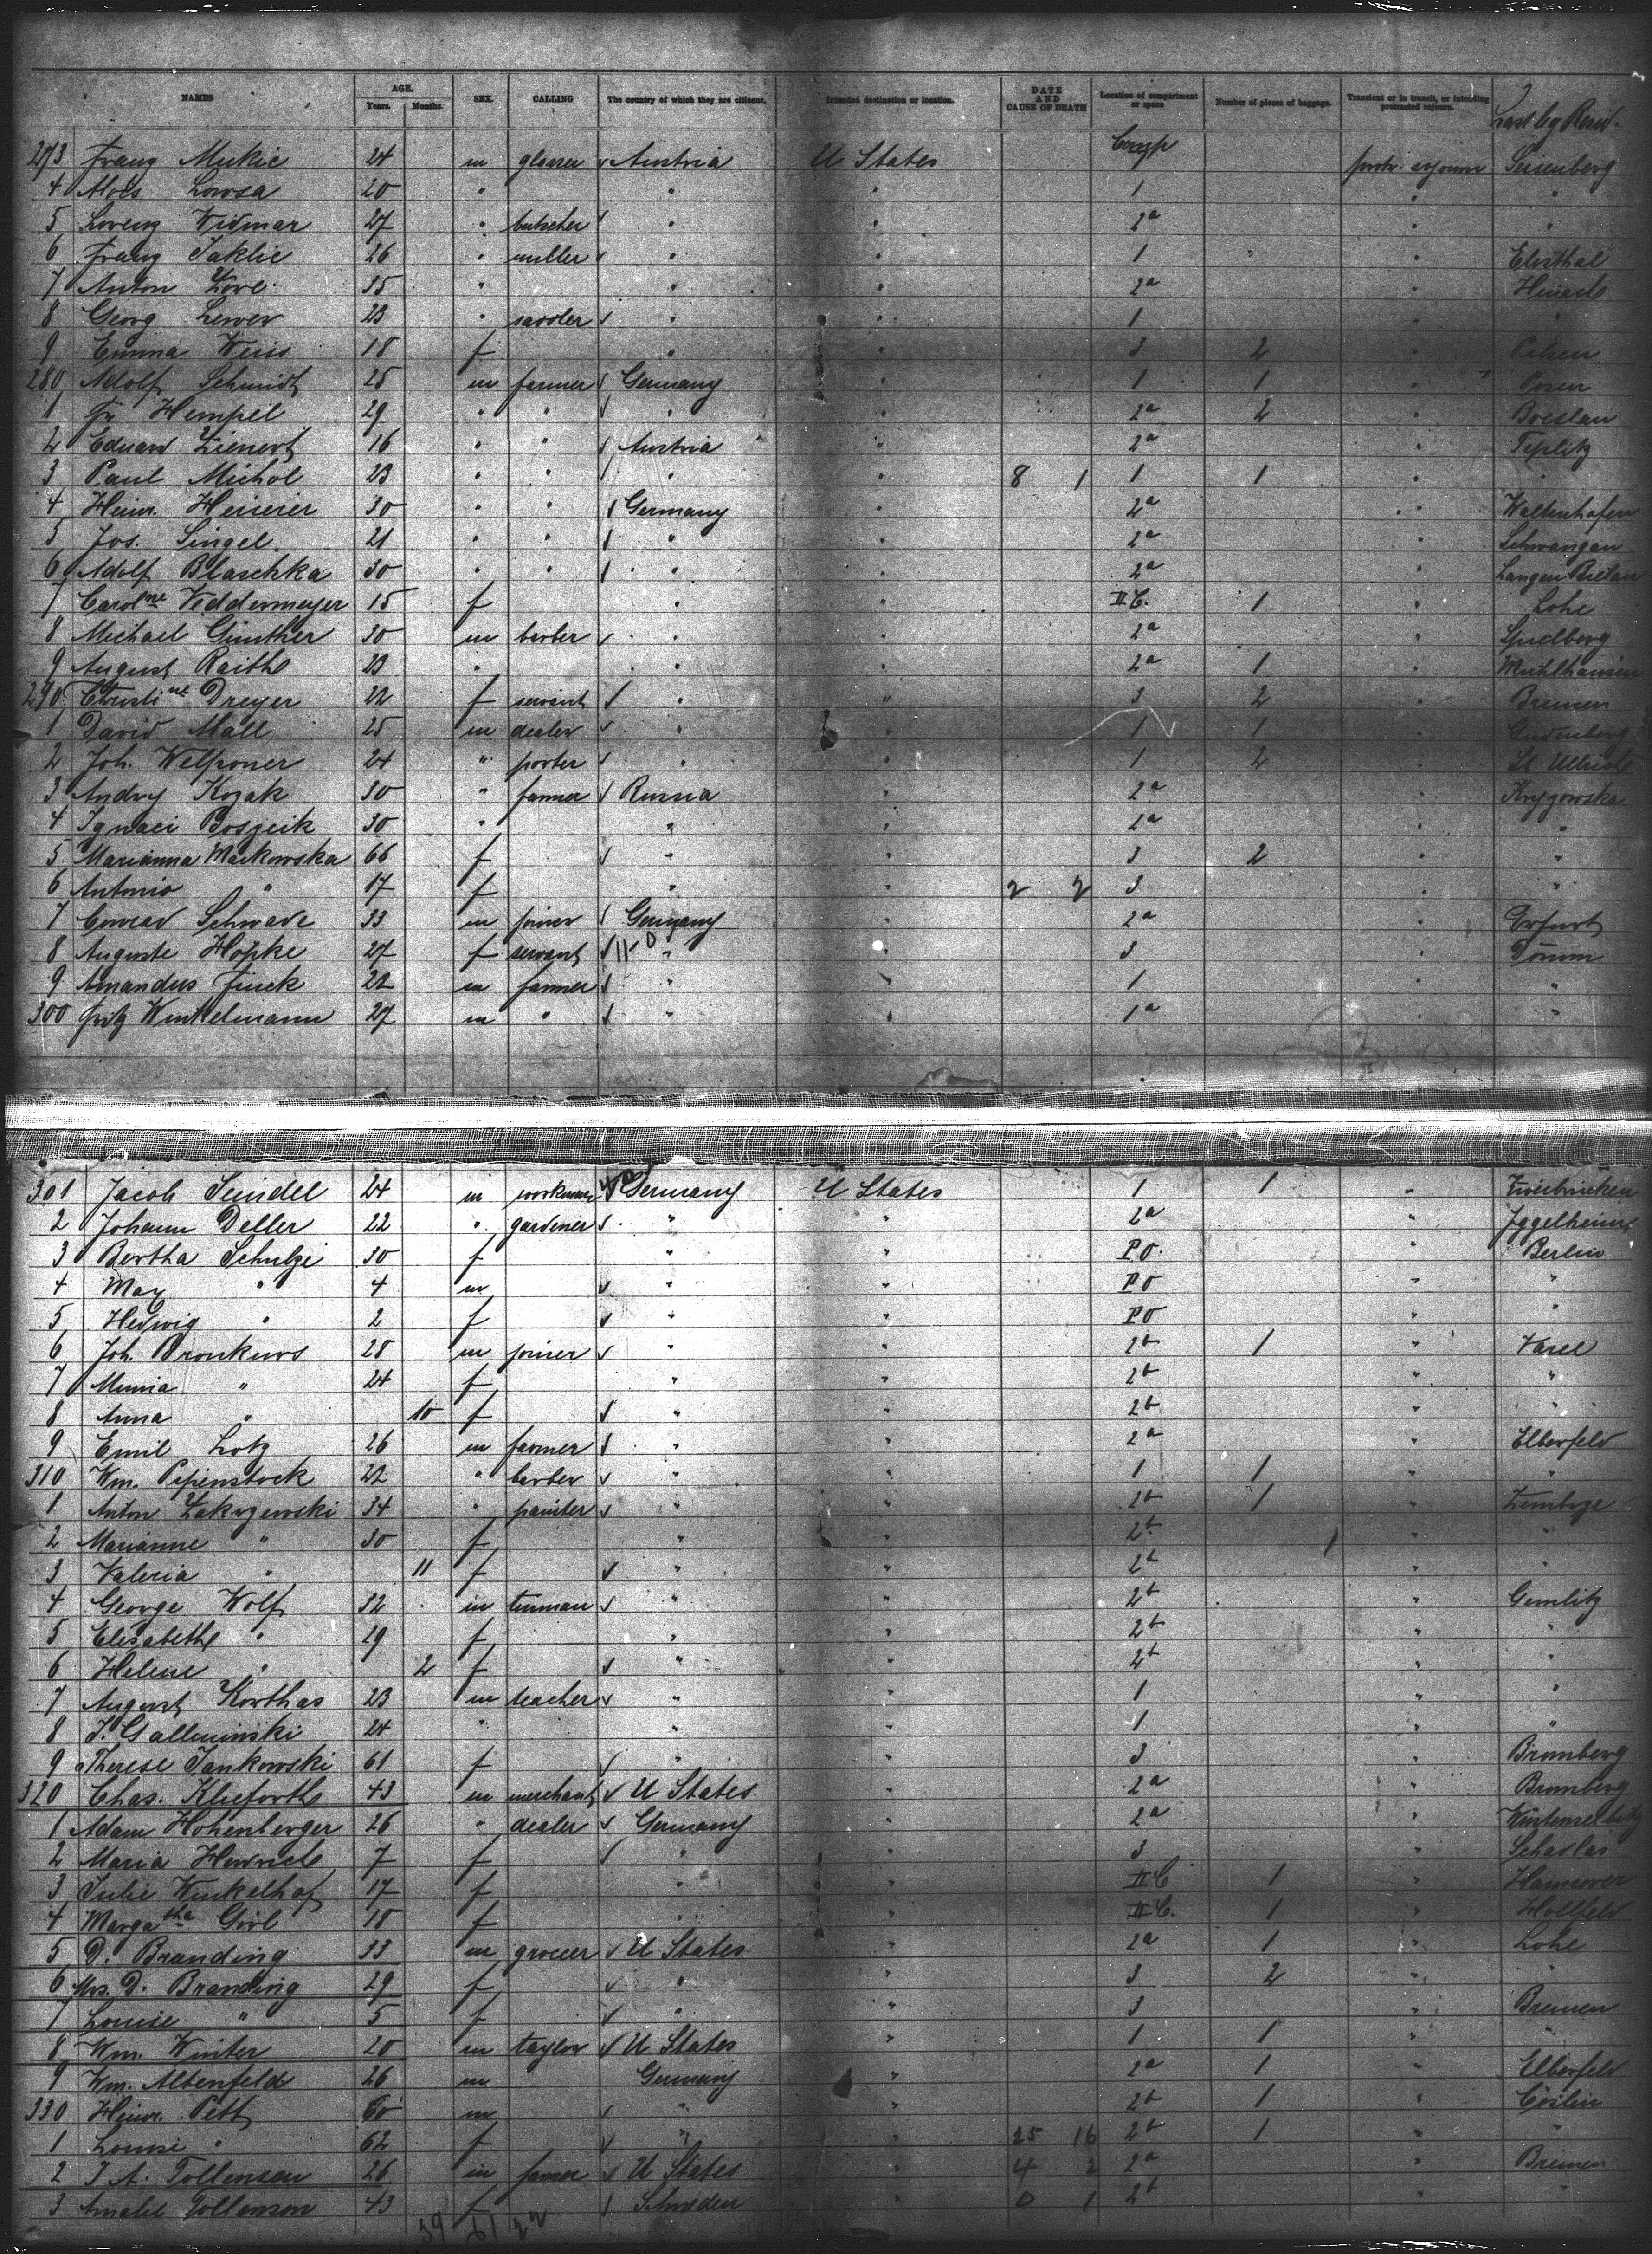 NAMES AGE. Years. Months. SEX. CALLING The country of which they are citizens. Intended destination or location. DATE AND CAUSE OF DEATH Location of compartment or space Number of pieces of baggage. Transient or in transit, or intending protracted sojourn. Last leg Resid.
Comp
273 Franz Mukic 24 m Austria U States protr. sojourn Seisenberg
4 Alois 20 " " " 1 " "
5 Lorenz Widmar 27 " butscher " " 2a " "
6 Franz Jaklic 26 " miller " " 1 "
7 Anton 35 " " " 2a "
8 Georg 23 " saddler " " 1 "
9 Emma Weiss 18 f " " 3 2 "
280 Adolf Schmidt 25 m farmer Germany " 1 1 " Posen
1 Fr Hempel 29 " " " " 2a 2 " Breslau
2 Eduard Lienert 16 " " Austria " 2a " Teplitz
3 Paul Michol 23 " " " 8 1 1 1 " "
4 Heinr. Heiserer 30 " " Germany 2a " Waltenhofen
5 Jos. Singel 21 " " " " 2a " Schwangau
6 Adolf Blaschka 30 " " " " 2a " Langen Bielau
7 Carolne Veddermeyer 15 f " " II C. 1 " Lohe
8 Michael Günther 30 m barber " " 2a " Spielberg
9 August Raith 23 " " " 2a 1 " Muhlhausen
290 Christine Dreyer 22 f servant " " 3 2 " Bremen
1 David Mall 25 m dealer " " 1 1 " Gudenberg
2 Joh. Welponer 24 " porter " " 1 2 " St Ullrich
3 Andry Kozak 30 " farmer Russia " 2a " Krygowska
4 Ignaci Boszcik 30 " " " 2a " "
5 Marianna Markowska 66 f " " 3 2 " "
6 Antonio " 17 f " 2 2 3 " "
7 Conrad Schwade 33 m joiner Germany " 2a " Erfurt
8 Auguste Höpke 27 f servant " " 3 " Dorum
9 Amandus Finck 22 m farmer " " 1 " "
300 Fritz Winkelmann 27 m " " " 1a " "
301 Jacob Seindel 24 m workman Germany U States 1 1 " Zweibrücken
2 Johann Deller 22 " gardener " " 2a " Iggelheim
3 Bertha Schulze 30 f " " PO. " Berlin
4 Max " 4 m " " PO " "
5 Hedwig " 2 f " " PO " "
6 Joh. Bronkuws 28 m joiner " " 2b 1 " Varel
7 Minna " 24 f " " 2b " "
8 Anna " 10 f " " 2b " "
9 Emil Lotz 26 m farmer " " 2a " Elberfeld
310 Wm. Pipenstock 22 " barber " " 1 1 " "
1 Anton Zakrzewski 34 " painter " " 2b 1 "
2 Marianne " 30 f " " 2b " "
3 Valeria " 11 f " " 2b " "
4 George Wolf 32 m tinman " " 2b " Gemlitz
5 Elisabeth " 29 f " " 2b " "
6 Helene " 2 f " " 2b " "
7 August Korthas 23 m teacher " " 1 " "
8 J. Galleminski 24 " " " 1 " "
9 Therese Jankowski 61 f " " 3 " Bromberg
320 Chas. Klieforth 43 m merchant U States " 2a " Bromberg
1 Adam Hohenberger 26 " dealer Germany " 2a "
2 Maria Heinrich 7 f " " 3 "
3 Julie Winkelhof 17 f " " II C 1 " Hannover
4 Margatha Girl 18 f " " II C. 1 " Hollfeld
5 D. Branding 33 m grocer U States " 2a 1 " Lohe
6 Mrs. D. Branding 29 f " " 3 2 " "
7 Louise " 5 f " " 3 " Bremen
8 Wm. Winter 20 m taylor U States " 1 1 " "
9 Wm. Altenfeld 26 m Germany " 2a 1 " Elberfeld
330 Heinr. Pett 60 m " " 2b 1 " Cöslin
1 Louise " 62 f " " 25 16 2b 1 " "
2 J. A. Tollenson 26 m farmer U States " 4 2 2a " Bremen
3 Amalie Tollenson 43 f Schweden " 0 1 2b " "
39 61 22